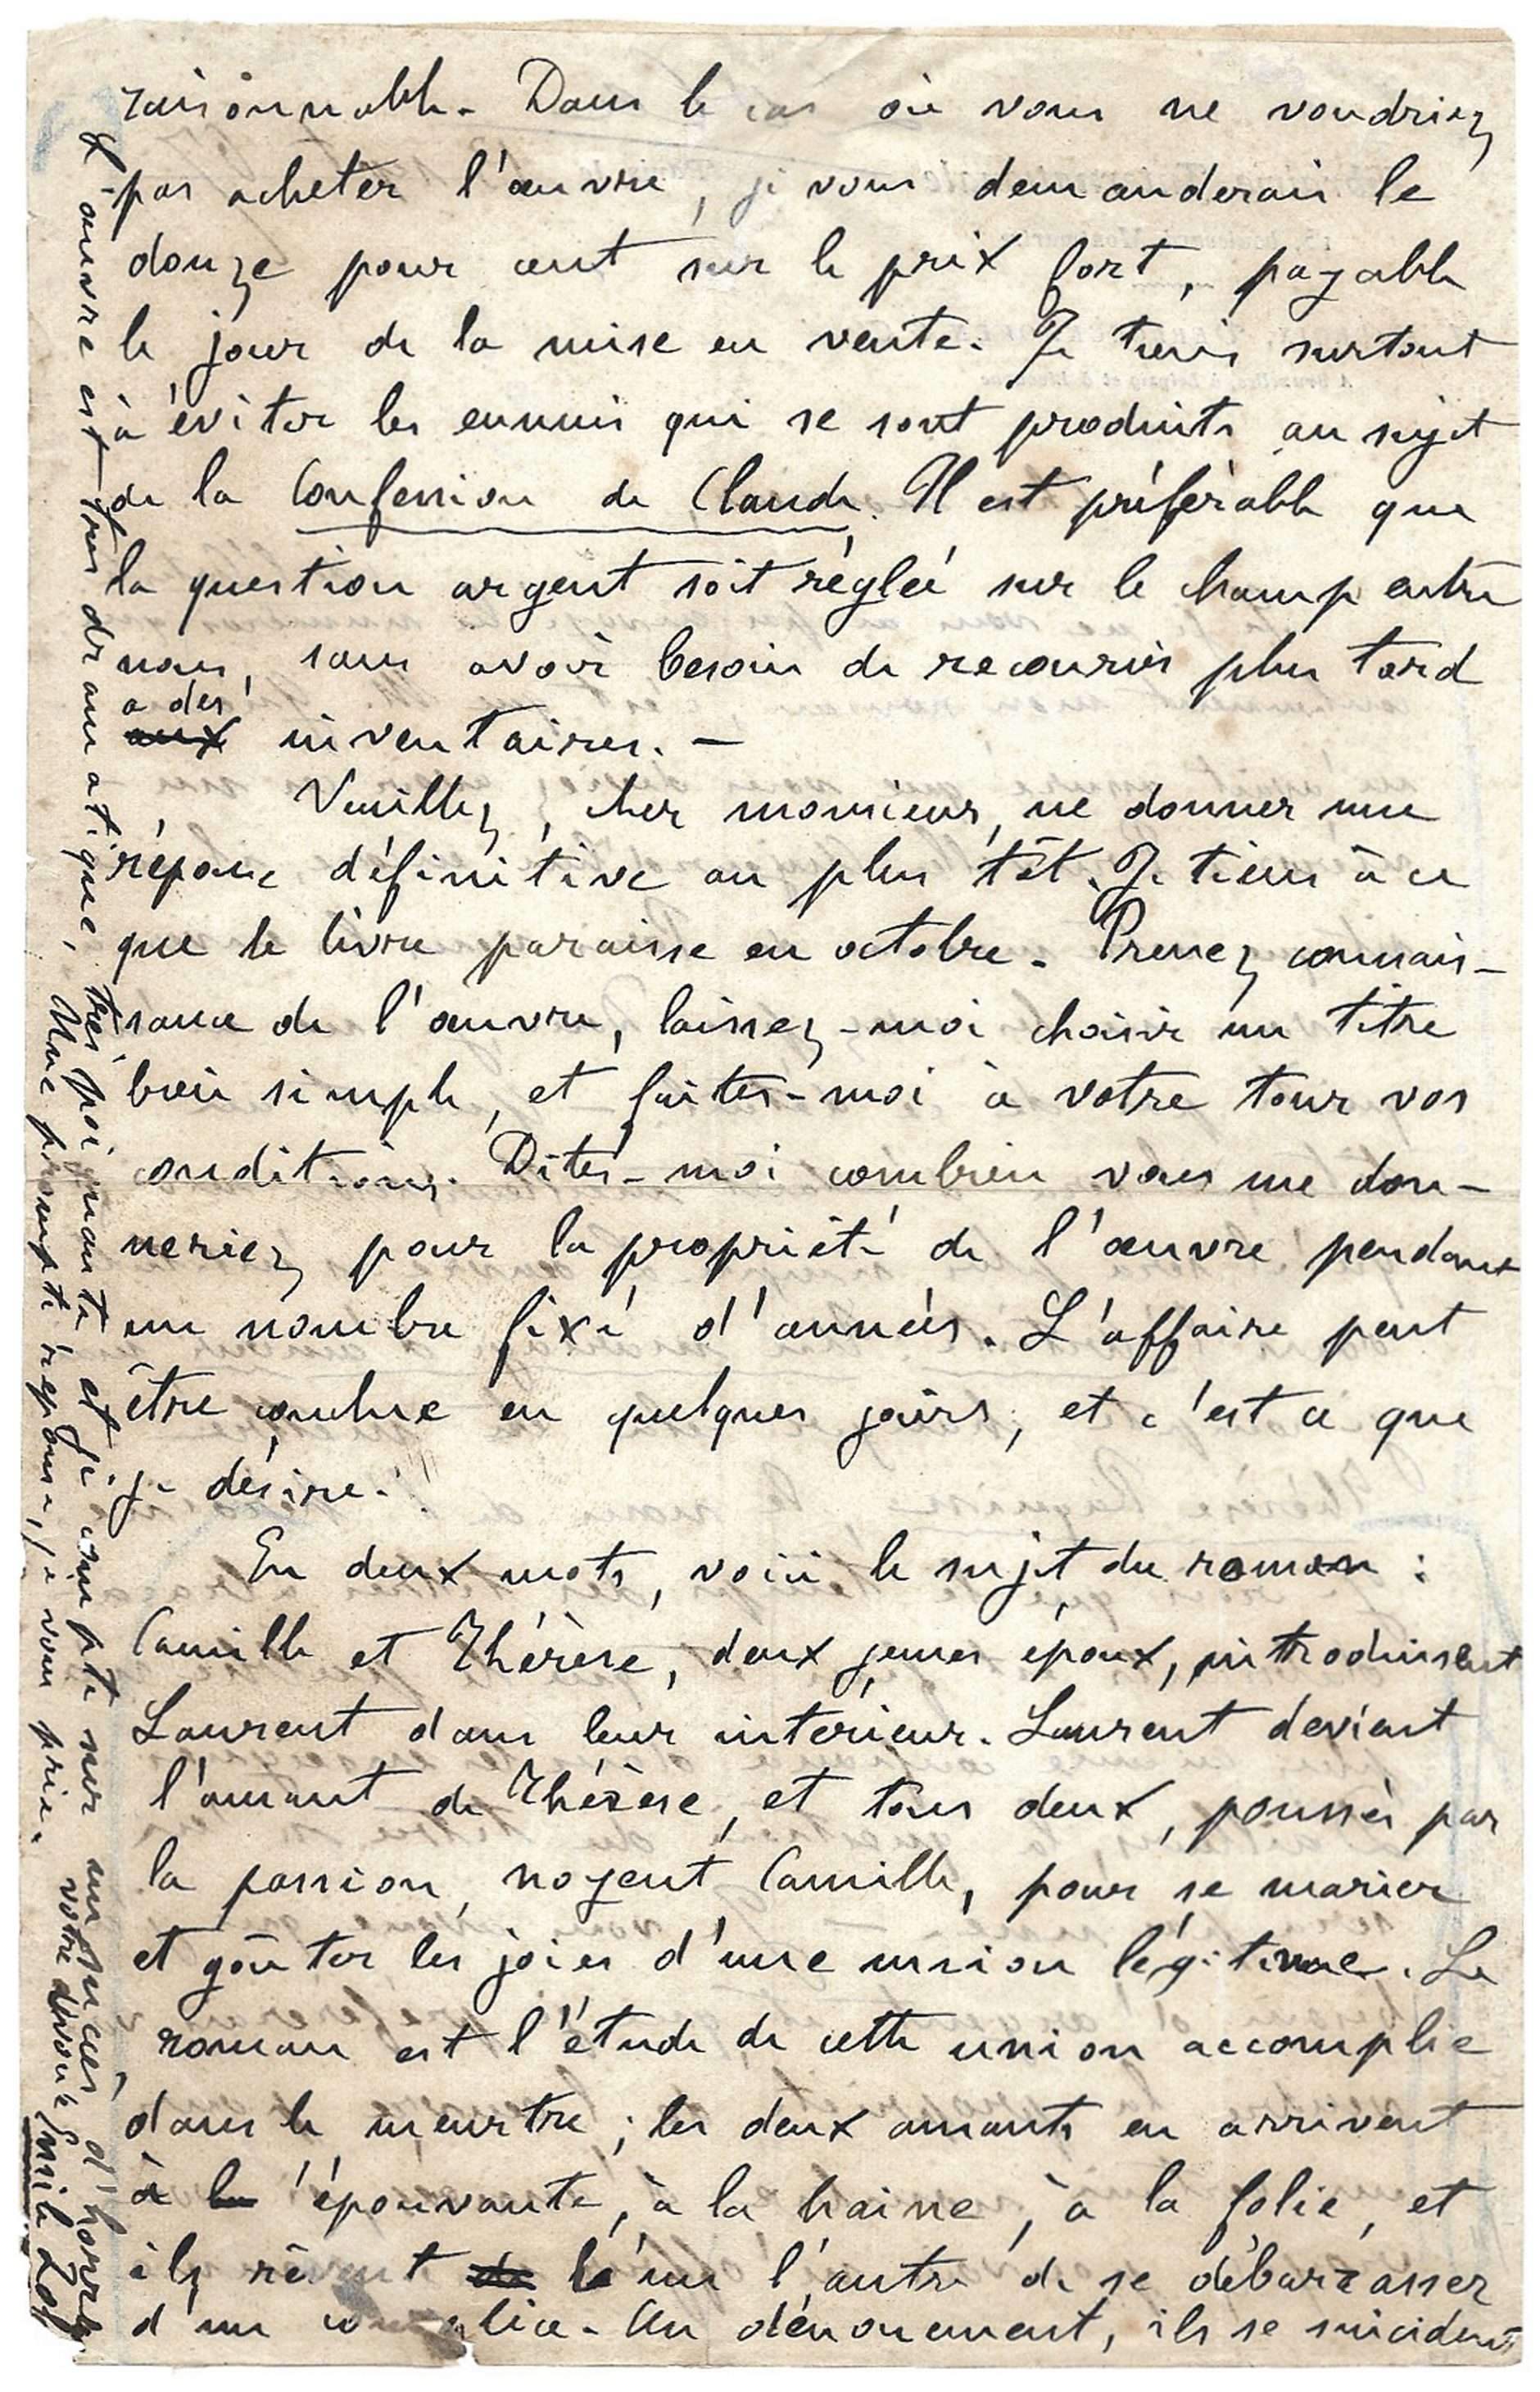 raisonnable. Dans le cas où vous ne voudriez
pas acheter l'œuvre, je vous demanderais le
douze pour cent sur le prix fort, payable
le jour de la mise en vente. Je tiens surtout
à éviter les ennuis qui se sont produits au sujet
de la Confession de Claude. Il est préférable que
la question argent soit réglée sur le champ entre
nous, sans avoir besoin de recourir plus tard
à des
aux inventaires. —
Veuillez, cher monsieur, me donner une
réponse définitive au plus tôt. Je tiens à ce
que le livre paraisse en octobre. Prenez connais-
sance de l'œuvre, laissez-moi choisir un titre
bien simple, et faites-moi à votre tour vos
conditions. Dites-moi combien vous me don-
neriez pour la propriété de l'œuvre pendant
un nombre fixé d'années. L'affaire peut
être conclue en quelques jours, et c'est ce que
je désire.
En deux mots, voici le sujet du roman :
Camille et Thérèse, deux jeunes époux, introduisent
Laurent dans leur intérieur. Laurent devient
l'amant de Thérèse, et tous deux, poussés par
la passion, noyent Camille, pour se marier
et goûter les joies d'une union légitime. Le
roman est l'étude de cette union accomplie
dans le meurtre ; les deux amants en arrivent
à la épouvante, à la haine, à la folie, et
ils rêvent de l'un l'autre de se débarrasser
d'un complice. Au dénouement, ils se suicident
L'œuvre est très dramatique, très poignante, et je compte sur un succès d'horreur.
Une prompte réponse, je vous prie.
Votre dévoué
Emile Zola